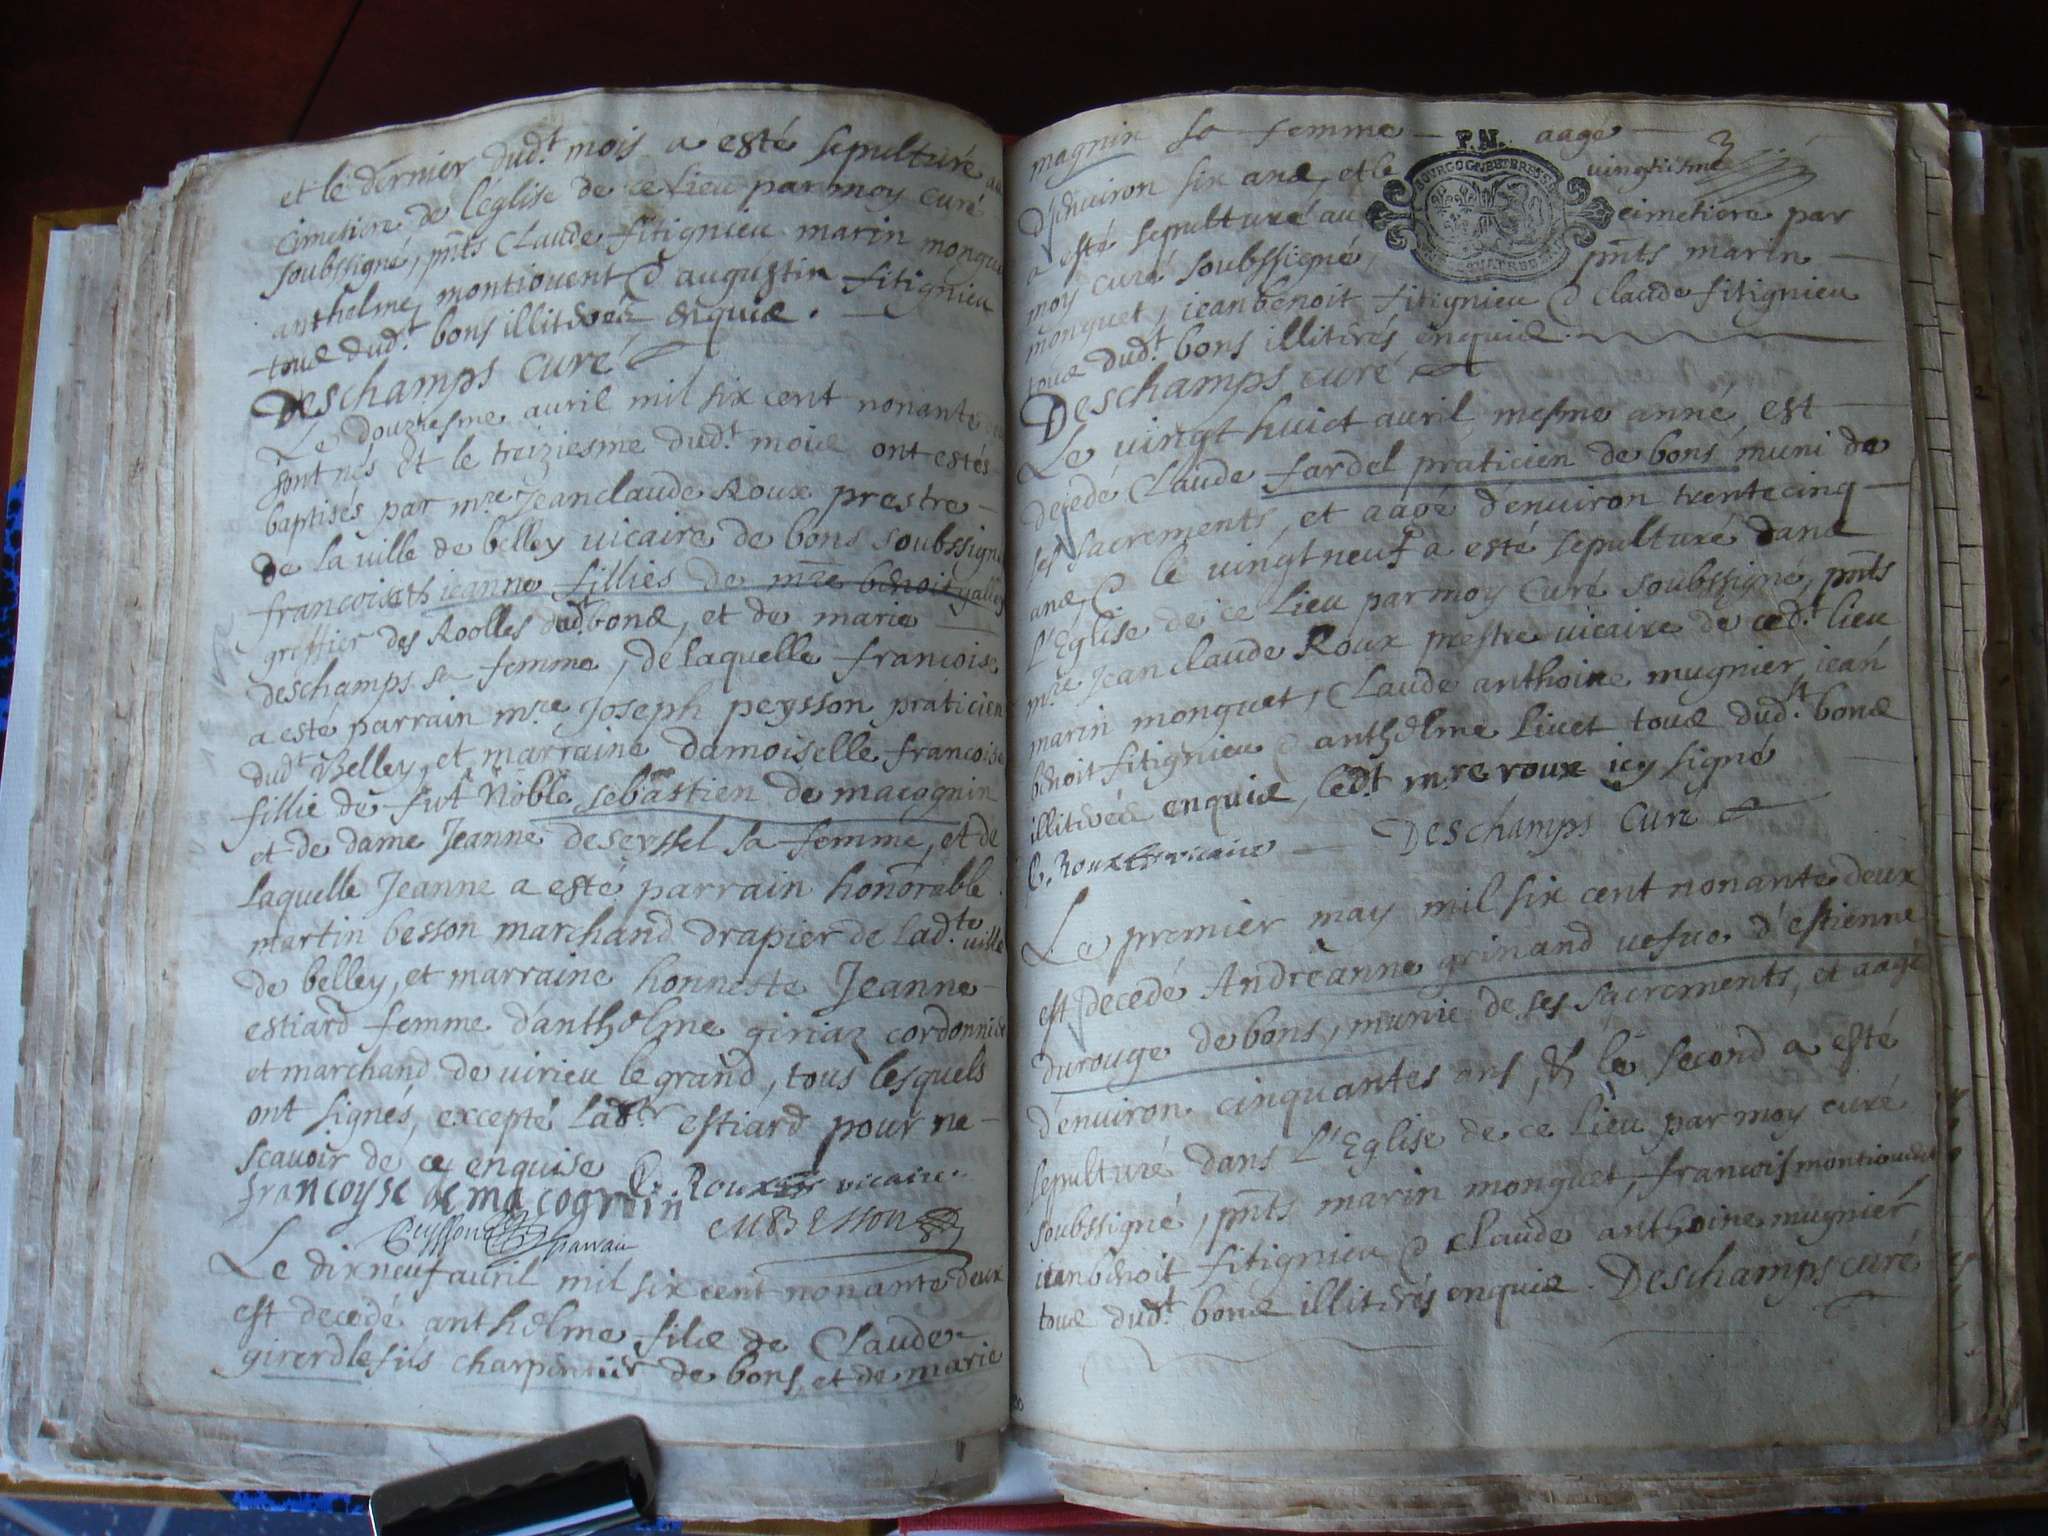 et le dernier dud.t mois a esté sepulturé au
Cimetiere de l'église de ce lieu par moy curé
soubssigné, pnts Claude fitignieu marin monguet
anthelme montiouent & augustin fitignieu
tous dud.t bons illiterés enquis.
Deschamps curé
Le douziesme auril mil six cent nonante
sont nés et le treiziesme dud.t mois ont estés
baptisés par m.re Jeanclaude Roux prestre
de la ville de belley vicaire de bons soubssigné
francoise et jeanne fillies de m.re benoit
greffier des Roolles dud.t bons, et de marie
deschamps sa femme, de laquelle francoise
a esté parrain m.re Joseph peysson praticien
dud.t Belley, et marraine damoiselle francoise
fillie de fut Noble sebastien de macognin
et de dame Jeanne deseyssel sa femme, et de
laquelle Jeanne a esté parrain honnorable
martin besson marchand drapier de lad.te ville
de belley, et marraine honneste Jeanne
estiard femme d'anthelme giriaz cordonnier
et marchand de virieu le grand, tous lesquels
ont signés, excepté lad.te estiard pour ne
scavoir de ce enquise C. Roux vicaire.
francoyse de macognin
peysson parrain M BESSON
Le dixneuf auril mil six cent nonante deux
est decedé anthelme fils de Claude
girerd le fils charpentier de bons, et de marie
magnin sa femme P.N. aagé
d'enuiron six ans, et le vingtiesme
a esté sepulturé au cimetiere par
moy curé soubssigné, pnts marin
monguet, jeanbenoit fitignieu & Claude fitignieu
tous dud.t bons illiterés enquis.
Deschamps curé
Le vingt huict auril mesme anné est
decedé Claude fardel praticien de bons muni de
ses sacrements, et aagé d'enuiron trentecinq
ans, & le vingtneuf a esté sepulturé dans
L'Eglise de ce lieu par moy Curé soubssigné, pnts
m.re Jeanclaude Roux prestre vicaire de ced.t lieu
marin monguet, Claude anthoine mugnier jean
benoit fitignieu & anthelme liuet tous dud.t bons
illiterés enquis, led.t m.re roux icy signé
C. Roux vicaire Deschamps Curé
Le premier may mil six cent nonante deux
est decedé Andréanne grinand vefue d'estienne
durouge de bons, munie de ses sacrements, et aagé
d'enuiron cinquantes ans, & le second a esté
sepulturé dans L'Eglise de ce lieu par moy curé
soubssigné, pnts marin monguet, francois montiouent
jeanbenoit fitignieu & Claude anthoine mugnier
tous dud.t bons illiterés enquis. Deschamps curé